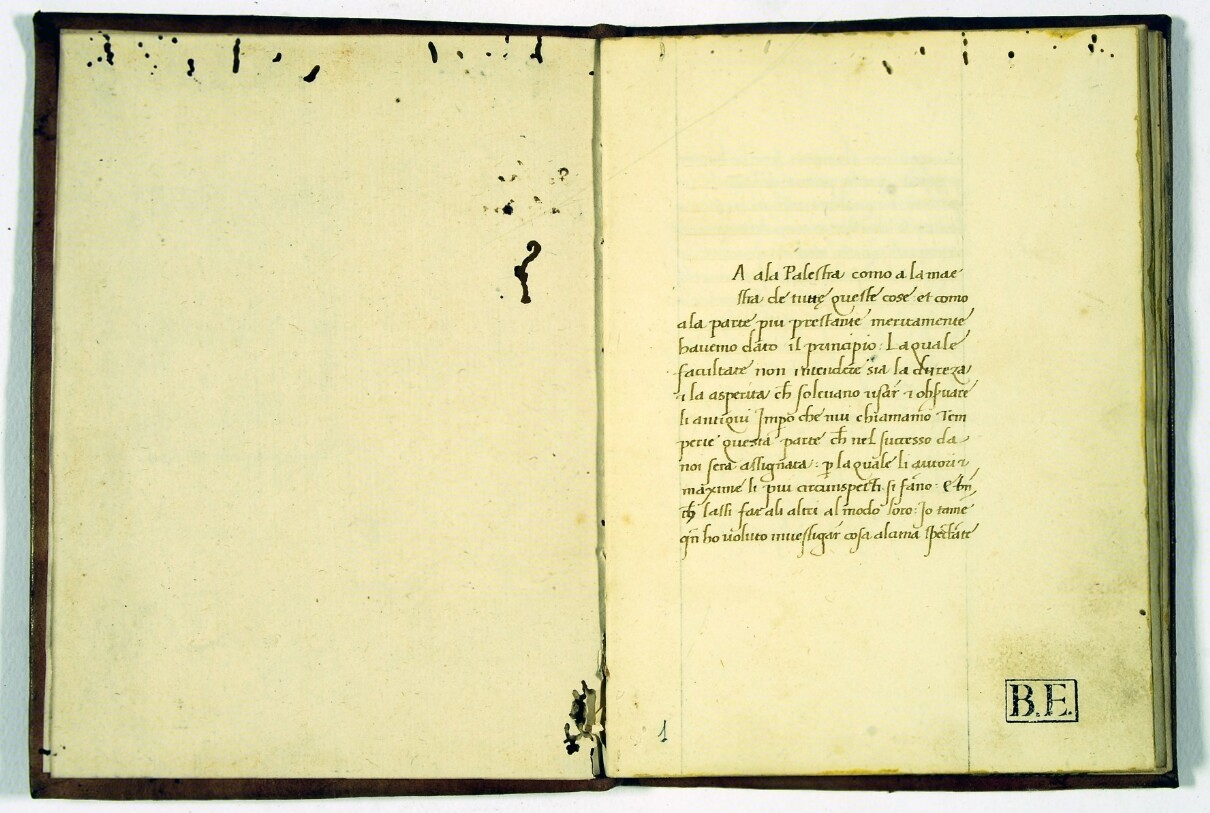 A ala Palestra como a la mae
stra de tutte queste cose et como
a la parte piu prestante meritamente
havemo dato il principio : La quale
facultate non intendete sia la dureza
⁊ la asperita ch̄ solevano usar ⁊ obs̄vare
li antiqui Impo che nui chiamamo Tem
perie questa parte ch̄ nel successo da
noi sera assignata : p̱ la quale li autori ⁊
maxime li piu circunspecti si fano
ch̄ lassi far ali altri al modo loro : Io tamē
ho voluto investigar cosa alcuna spectāte
1
B.E.